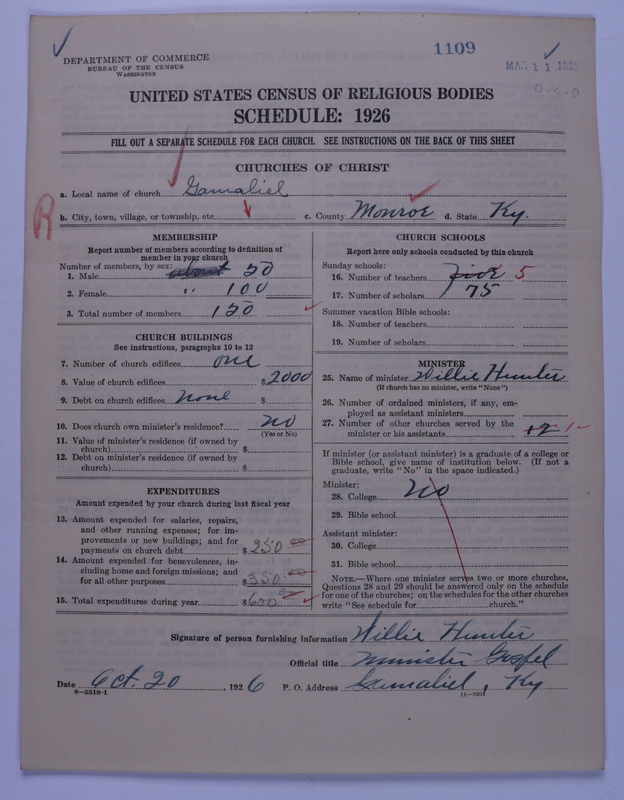 1109
DEPARTMENT OF COMMERCE
BUREAU OF THE CENSUS
WASHINGTON
MAR 11
UNITED STATES CENSUS OF RELIGIOUS BODIES
SCHEDULE: 1926
FILL OUT A SEPARATE SCHEDULE FOR EACH CHURCH. SEE INSTRUCTIONS ON THE BACK OF THIS SHEET
CHURCHES OF CHRIST
a. Local name of church Gamaliel
b. City, town, village, or township, etc. c. County Monroe d. State Ky.
R
MEMBERSHIP
Report number of members according to definition of
member in your church
Number of members, by sex:
1. Male about 50
2. Female " 100
3. Total number of members 150
CHURCH BUILDINGS
See instructions, paragraphs 10 to 12
7. Number of church edifices one
8. Value of church edifices $2000
9. Debt on church edifices none $
10. Does church own minister's residence? no
(Yes or No)
11. Value of minister's residence (if owned by
church) $
12. Debt on minister's residence (if owned by
church) $
EXPENDITURES
Amount expended by your church during last fiscal year
13. Amount expended for salaries, repairs,
and other running expenses; for im-
provements or new buildings; and for
payments on church debt $250.00
14. Amount expended for benevolences, in-
cluding home and foreign missions; and
for all other purposes 350.00
15. Total expenditures during year $600.00
CHURCH SCHOOLS
Report here only schools conducted by this church
Sunday schools:
16. Number of teachers five 5
17. Number of scholars 75
Summer vacation Bible schools:
18. Number of teachers
19. Number of scholars
MINISTER
25. Name of minister Willie Hunter
(If church has no minister, write "None")
26. Number of ordained ministers, if any, em-
ployed as assistant ministers
27. Number of other churches served by the
minister or his assistants 12 1-
If minister (or assistant minister) is a graduate of a college or
Bible school, give name of institution below. (If not a
graduate, write "No" in the space indicated.)
Minister:
28. College no
29. Bible school
Assistant minister:
30. College
31. Bible school
NOTE—Where one minister serves two or more churches,
Questions 28 and 29 should be answered only on the schedule
for one of the churches; on the schedules for the other churches
write "See schedule for church."
Signature of person furnishing information Willie Hunter
Official title minister Gospel
Date Oct. 20, 1926 P. O. Address Gamaliel, Ky
8-5518-1